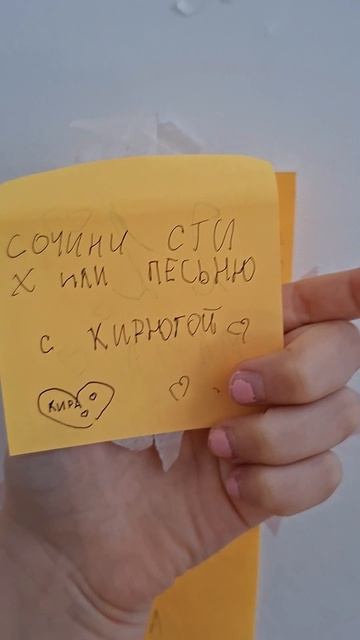 СОЧИНИ СТИ
Х ИЛИ ПЕСЬНЮ
С КИРЮГОЙ
КИРА